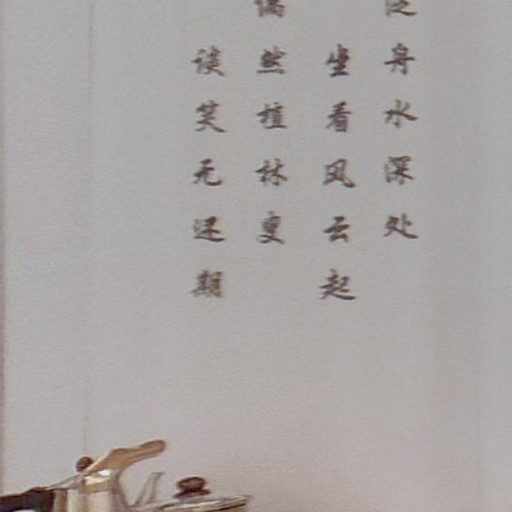 泛舟水深处
坐看风云起
偶然植林叟
谈笑无还期